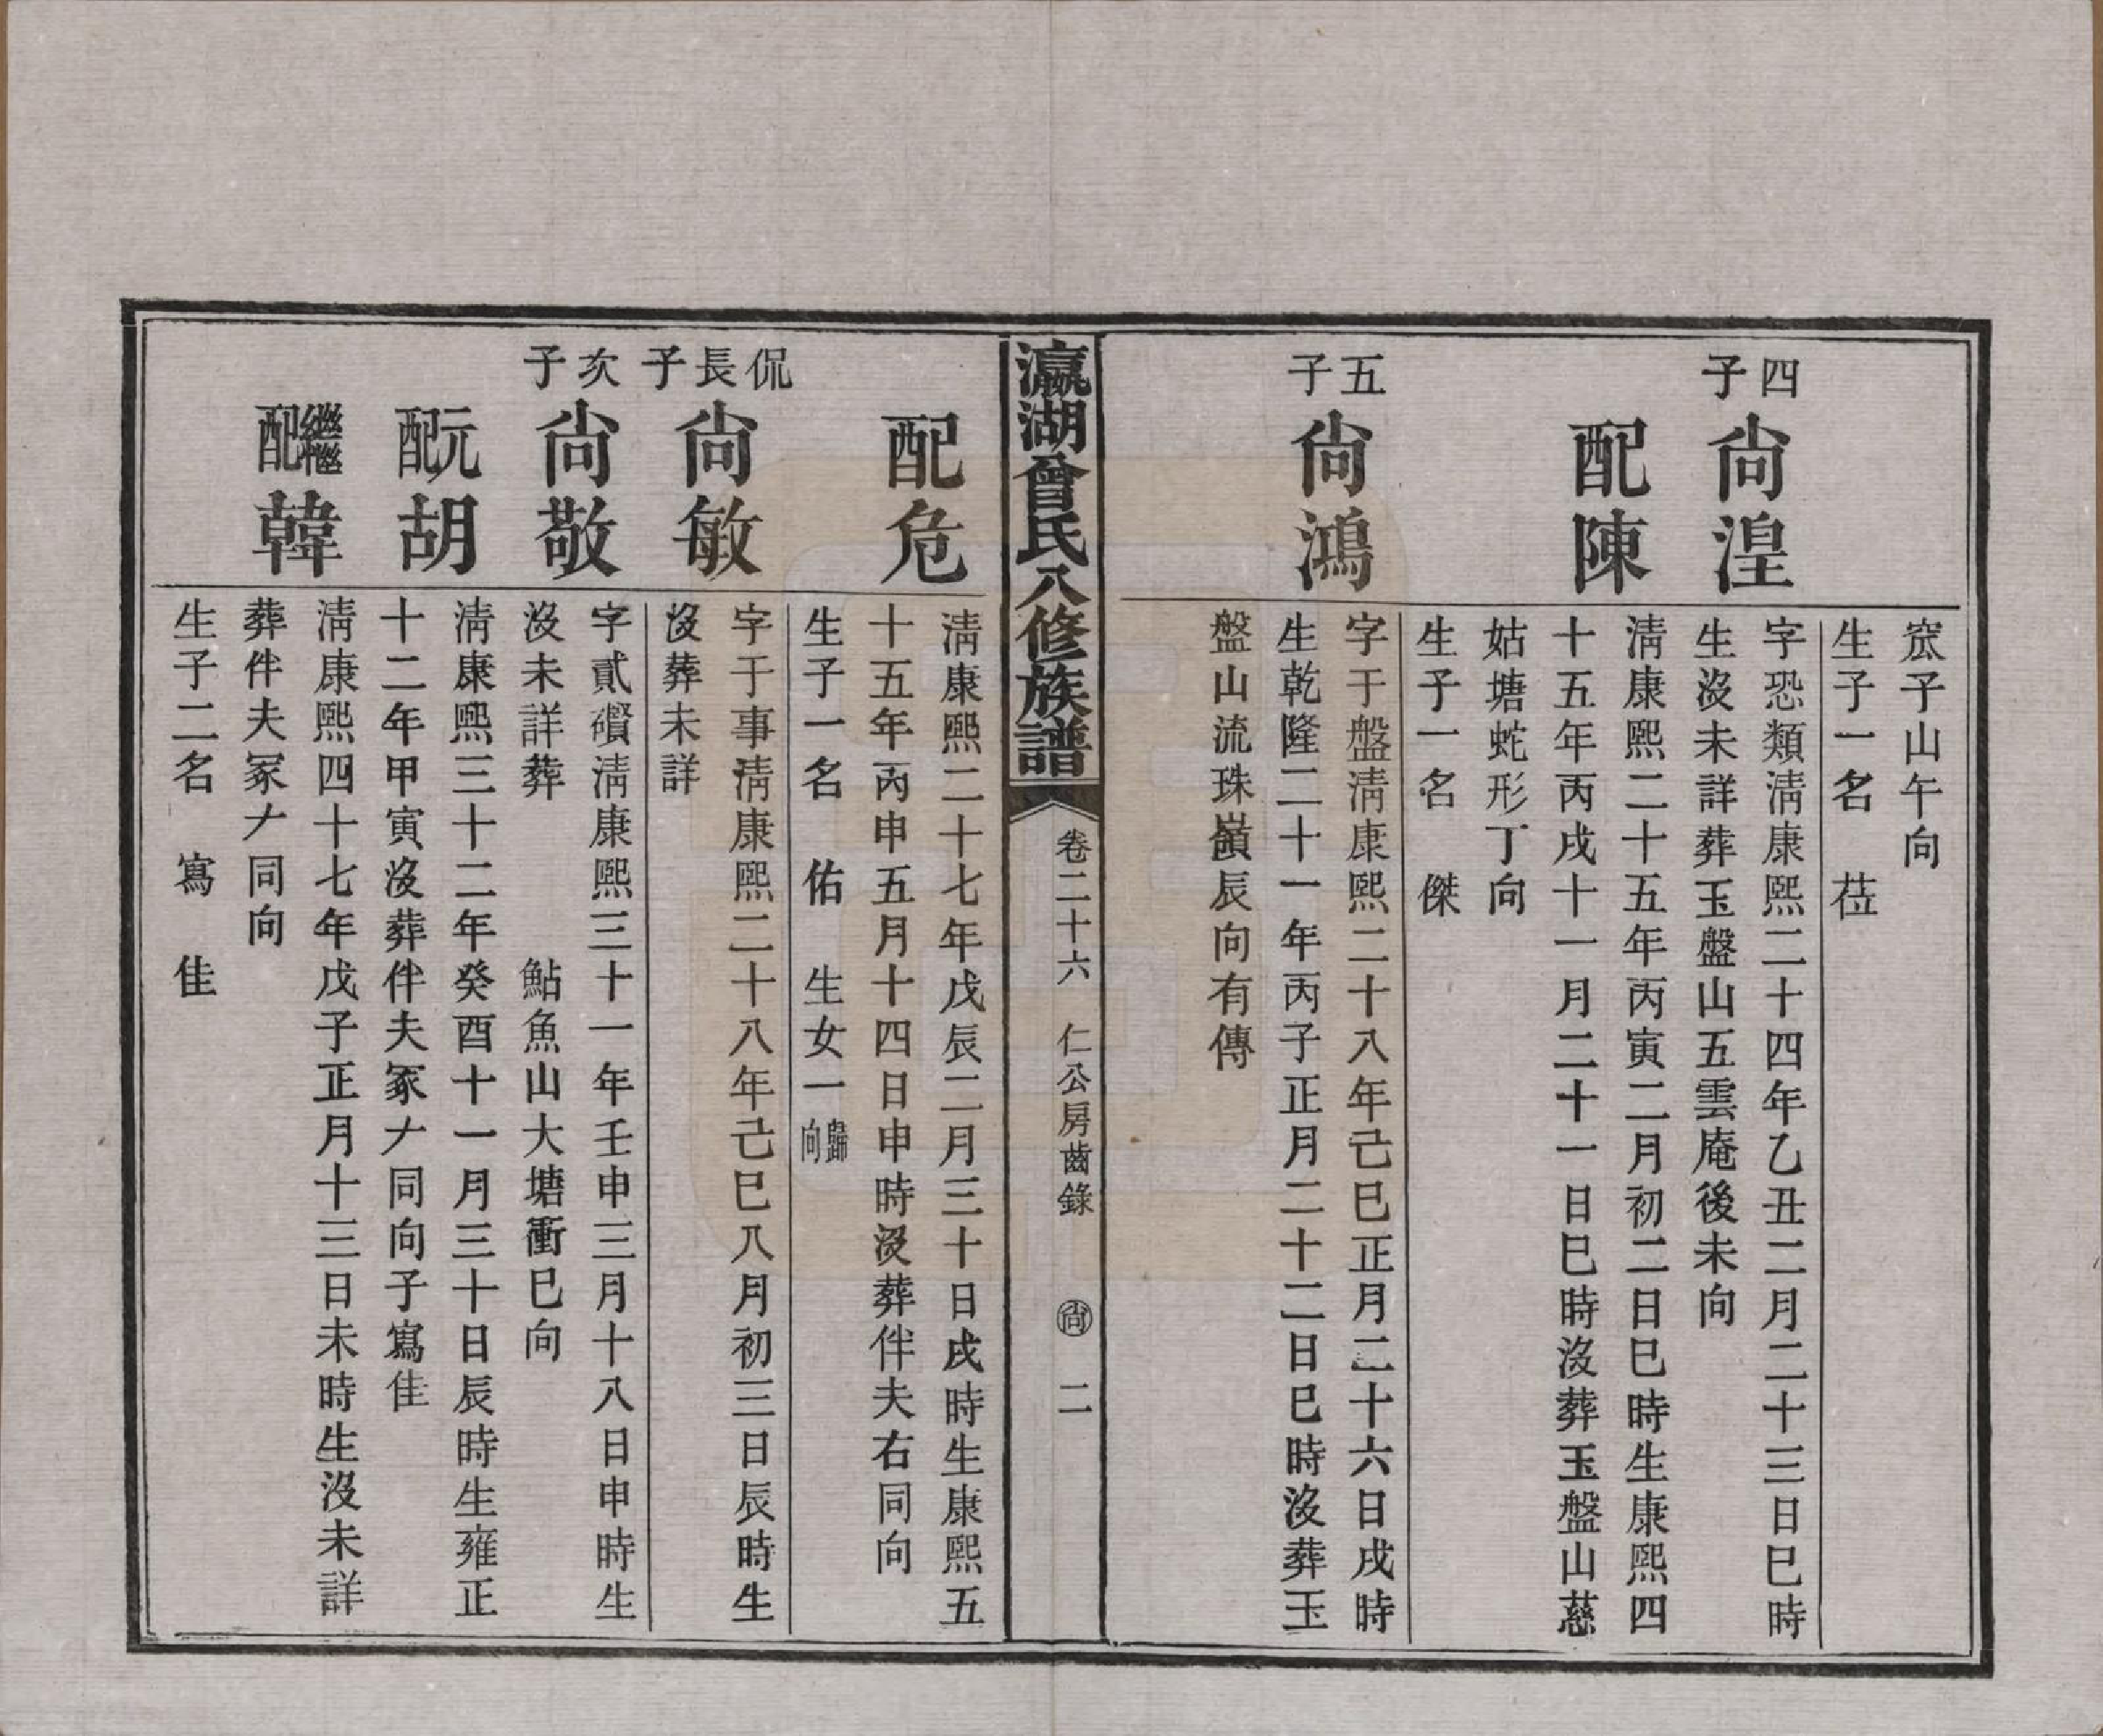 窊子山午向
生子一名　莅
四子
尙湟
字恐類淸康熙二十四年乙丑二月二十三日巳時
生沒未詳葬玉盤山五雲庵後未向
配陳
淸康熙二十五年丙寅二月初二日巳時生康熙四
十五年丙戌十一月二十一日巳時沒葬玉盤山慈
姑塘蛇形丁向
生子一名　傑
五子
尙鴻
字于盤淸康熙二十八年己巳正月二十六日戌時
生乾隆二十一年丙子正月二十二日巳時沒葬玉
盤山流珠嶺辰向有傳
瀛湖曾氏八修族譜
卷二十六　仁公房齒錄　尙　二
配危
淸康熙二十七年戊辰二月三十日戌時生康熙五
十五年丙申五月十四日申時沒葬伴夫右同向
生子一名　佑　生女一歸向
侃長子
尙敏
字于事淸康熙二十八年己巳八月初三日辰時生
沒葬未詳
次子
尙敬
字貳礥淸康熙三十一年壬申三月十八日申時生
沒未詳葬　　　鮎魚山大塘衝巳向
元配胡
淸康熙三十二年癸酉十一月三十日辰時生雍正
十二年甲寅沒葬伴夫冢𠂇同向子寫佳
繼配韓
淸康熙四十七年戊子正月十三日未時生沒未詳
葬伴夫冢𠂇同向
生子二名　寫　佳